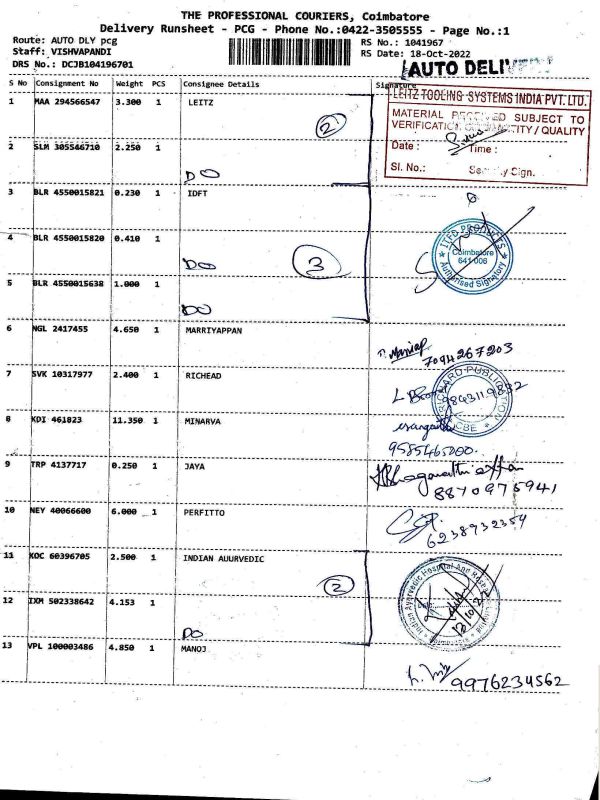 THE PROFESSIONAL COURIERS, Coimbatore
Delivery Runsheet - PCG - Phone No.:0422-3505555 - Page No.:1
Route: AUTO DLY pcg
Staff: VISHVAPANDI
DRS No.: DCJB104196701
RS No.: 1041967
RS Date: 18-Oct-2022
AUTO DELIVERY
S No Consignment No Weight PCS Consignee Details Signature
LEITZ TOOLING SYSTEMS INDIA PVT. LTD.
MATERIAL RECEIVED SUBJECT TO
VERIFICATION QUANTITY / QUALITY
Date : Time :
Sl. No.: Security Sign.
1 MAA 294566547 3.300 1 LEITZ
2
2 SLM 305546710 2.250 1
DO
3 BLR 4550015821 0.230 1 IDFT
4 BLR 4550015820 0.410 1
DO 3
Coimbatore
Authorised Signatory
5 BLR 4550015638 1.000 1
DO
6 NGL 2417455 4.650 1 MARRIYAPPAN
7094267203
7 SVK 10317977 2.400 1 RICHEAD
9843119832
8 KDI 461823 11.350 1 MINARVA
9585465000.
9 TRP 4137717 0.250 1 JAYA
8870975941
10 NEY 40066600 6.000 1 PERFITTO
6238932354
11 KOC 60396705 2.500 1 INDIAN AUURVEDIC
2
Indian Ayurvedic Hospital And
12 IXM 502338642 4.153 1
DO
13 VPL 100003486 4.850 1 MANOJ
9976234562